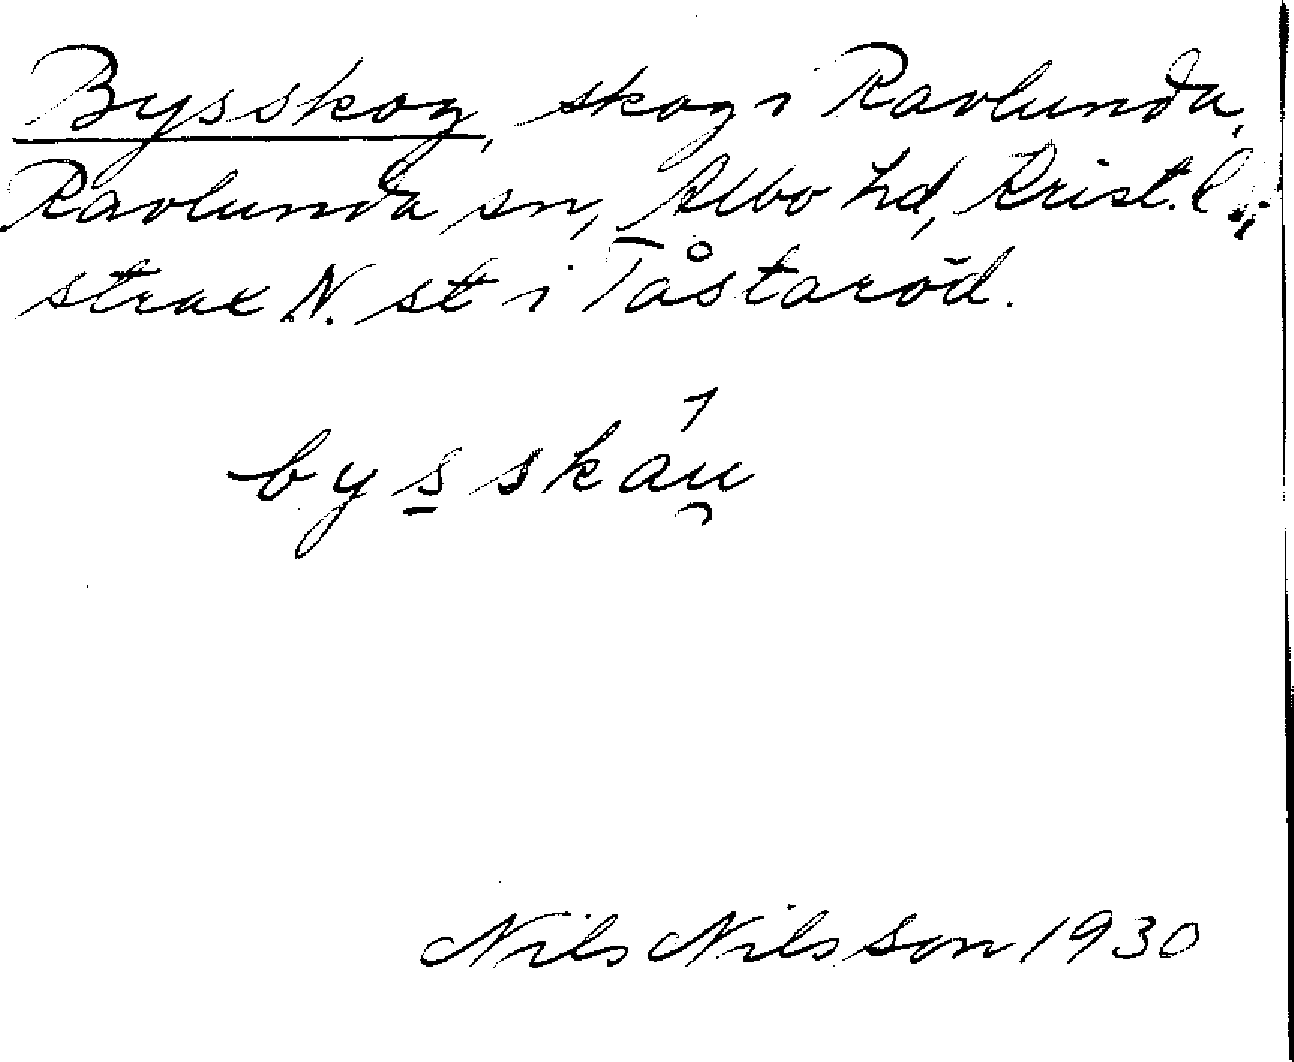 Bysskog, skog i Ravlunda,
Ravlunda sn, Albo hd, Krist. l.;
strax N. st i Tåstaröd.
bysskáu̯
Nils Nilsson 1930